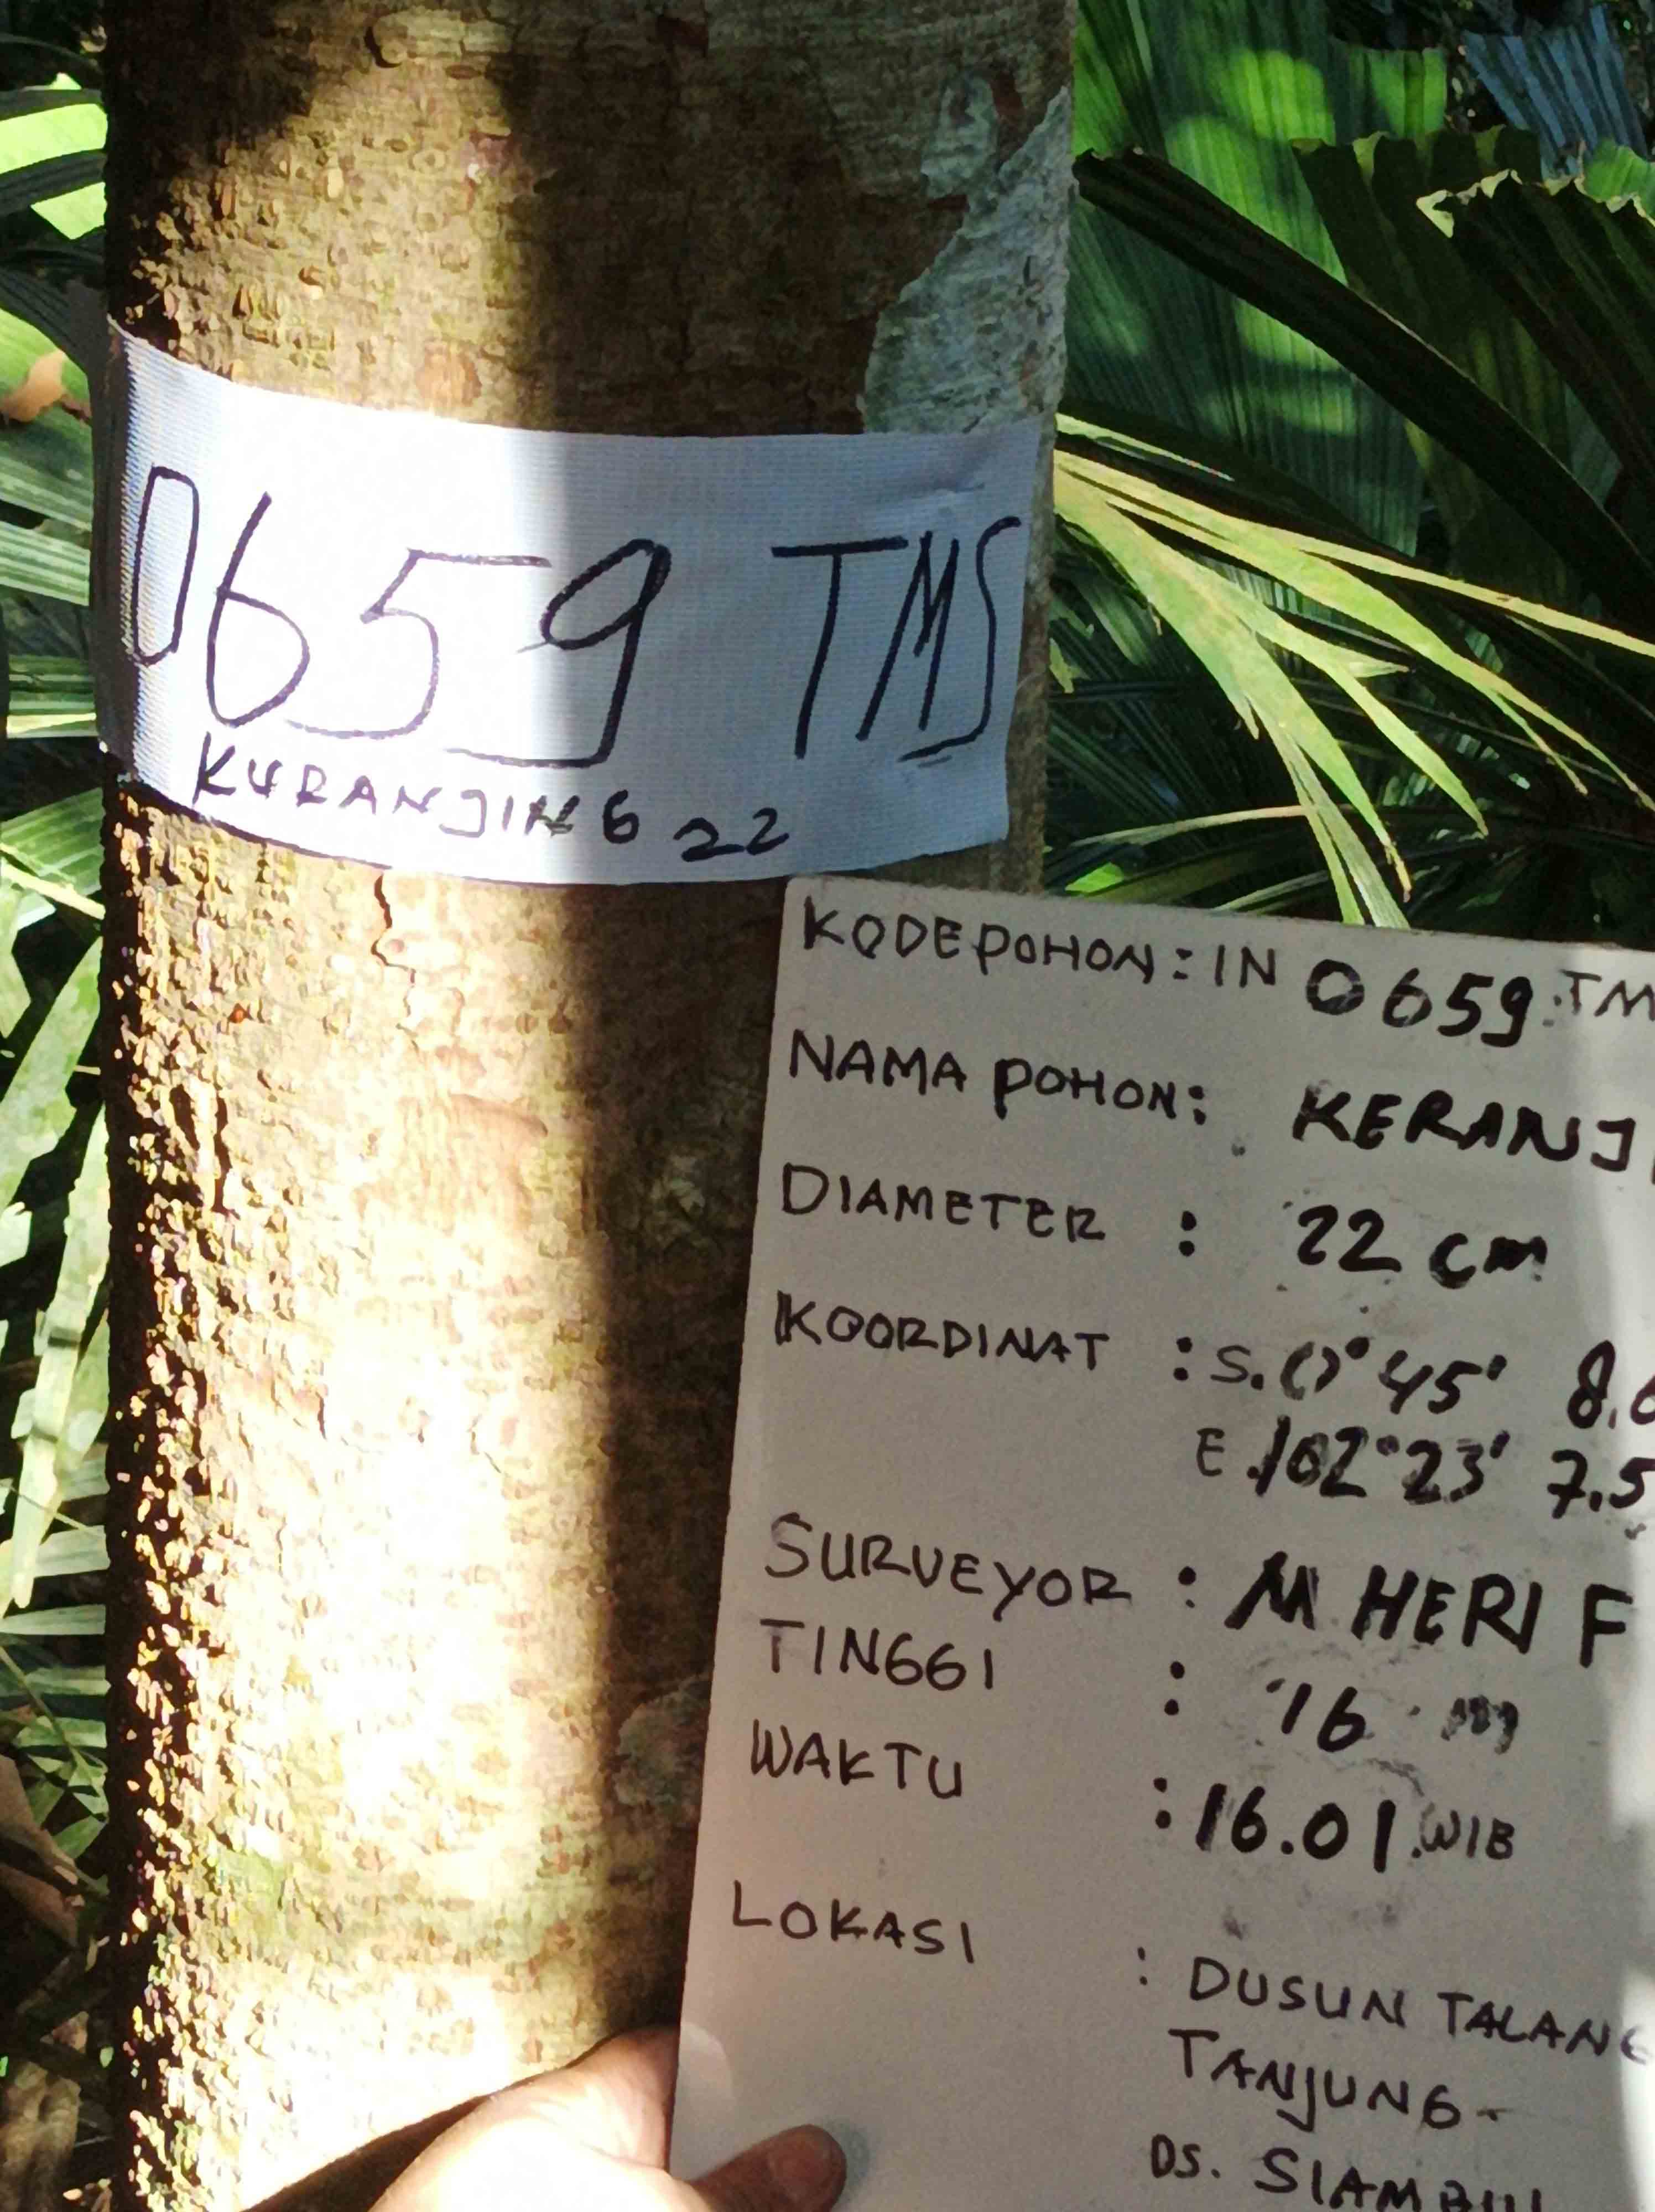 0659 TMS
KURANJING 22
KODE POHON : IN 0659.TM
NAMA POHON : KERANJ
DIAMETER : 22 cm
KOORDINAT : S.0°45' 8.6
E.102°23' 7.5
SURVEYOR : M HERI F
TINGGI : 16 m
WAKTU : 16.01.WIB
LOKASI : DUSUN TALANG
TANJUNG-
DS. SIAMBUL